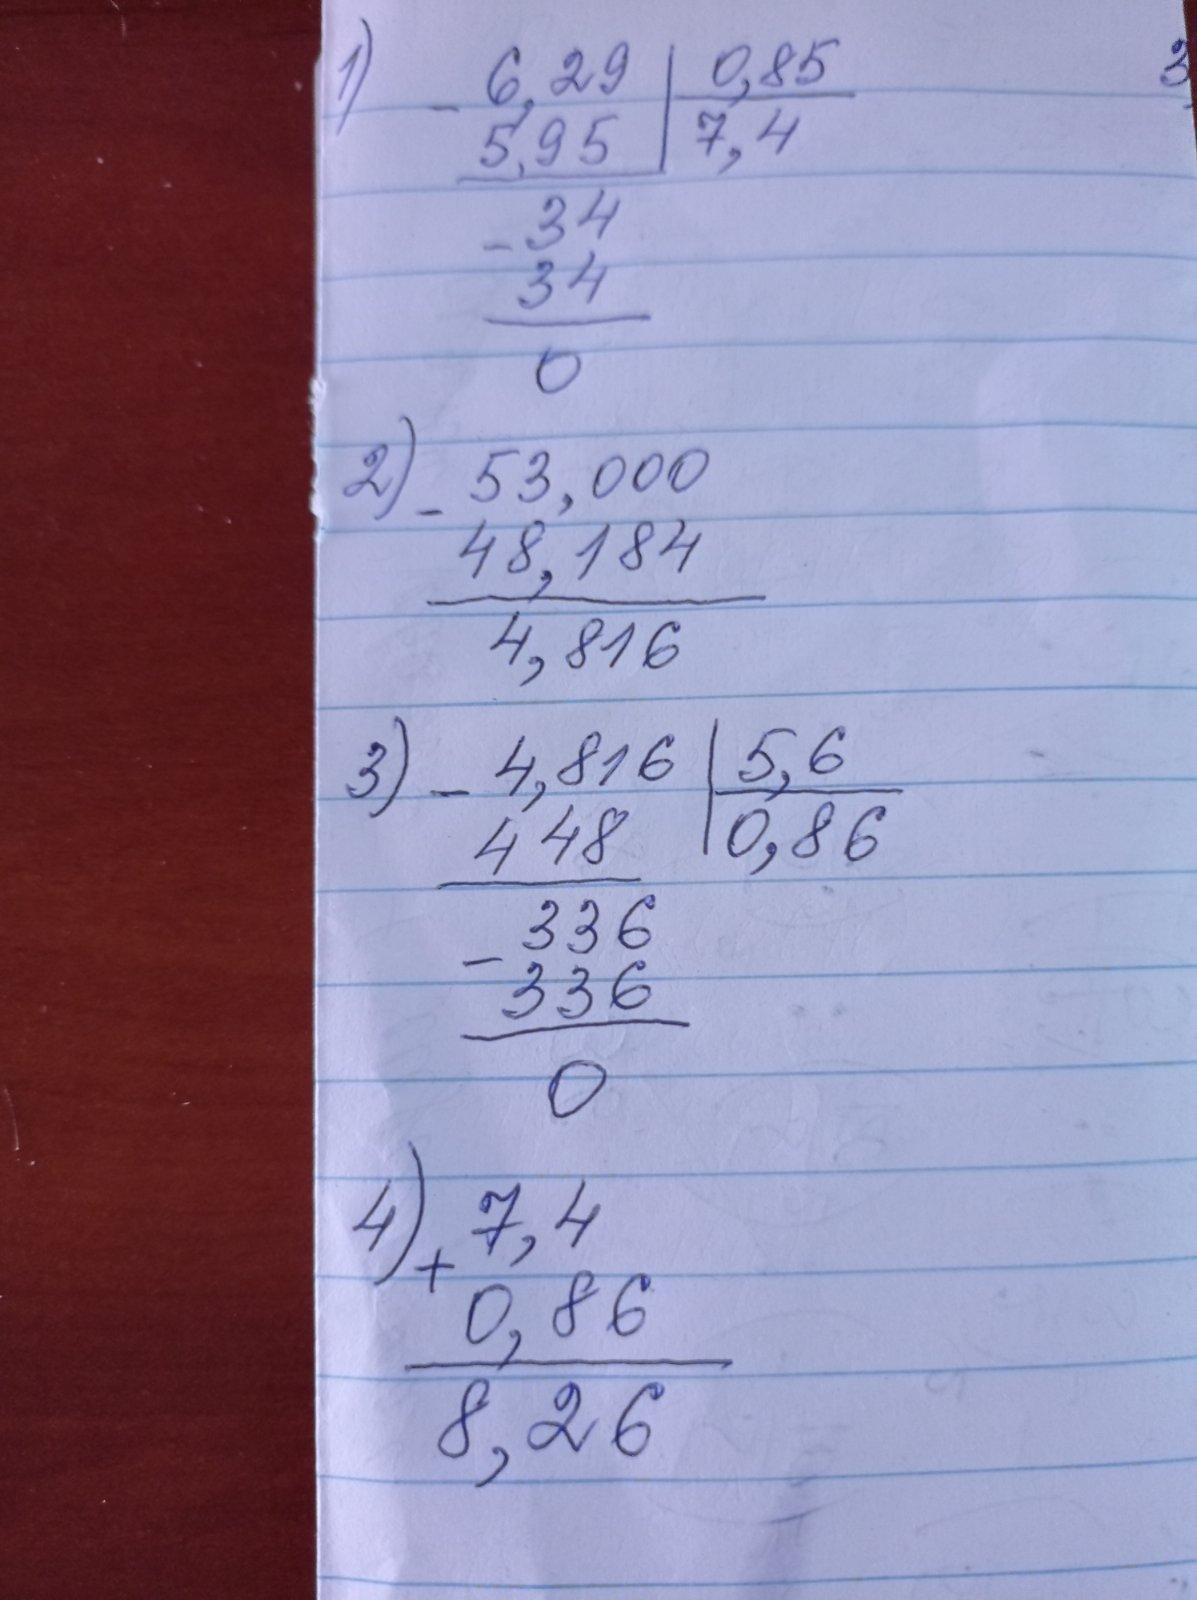 1) - 6,29 | 0,85
5,95 | 7,4
- 34
34
0
2) - 53,000
48,184
4,816
3) - 4,816 | 5,6
448 | 0,86
- 336
336
0
4) + 7,4
0,86
8,26